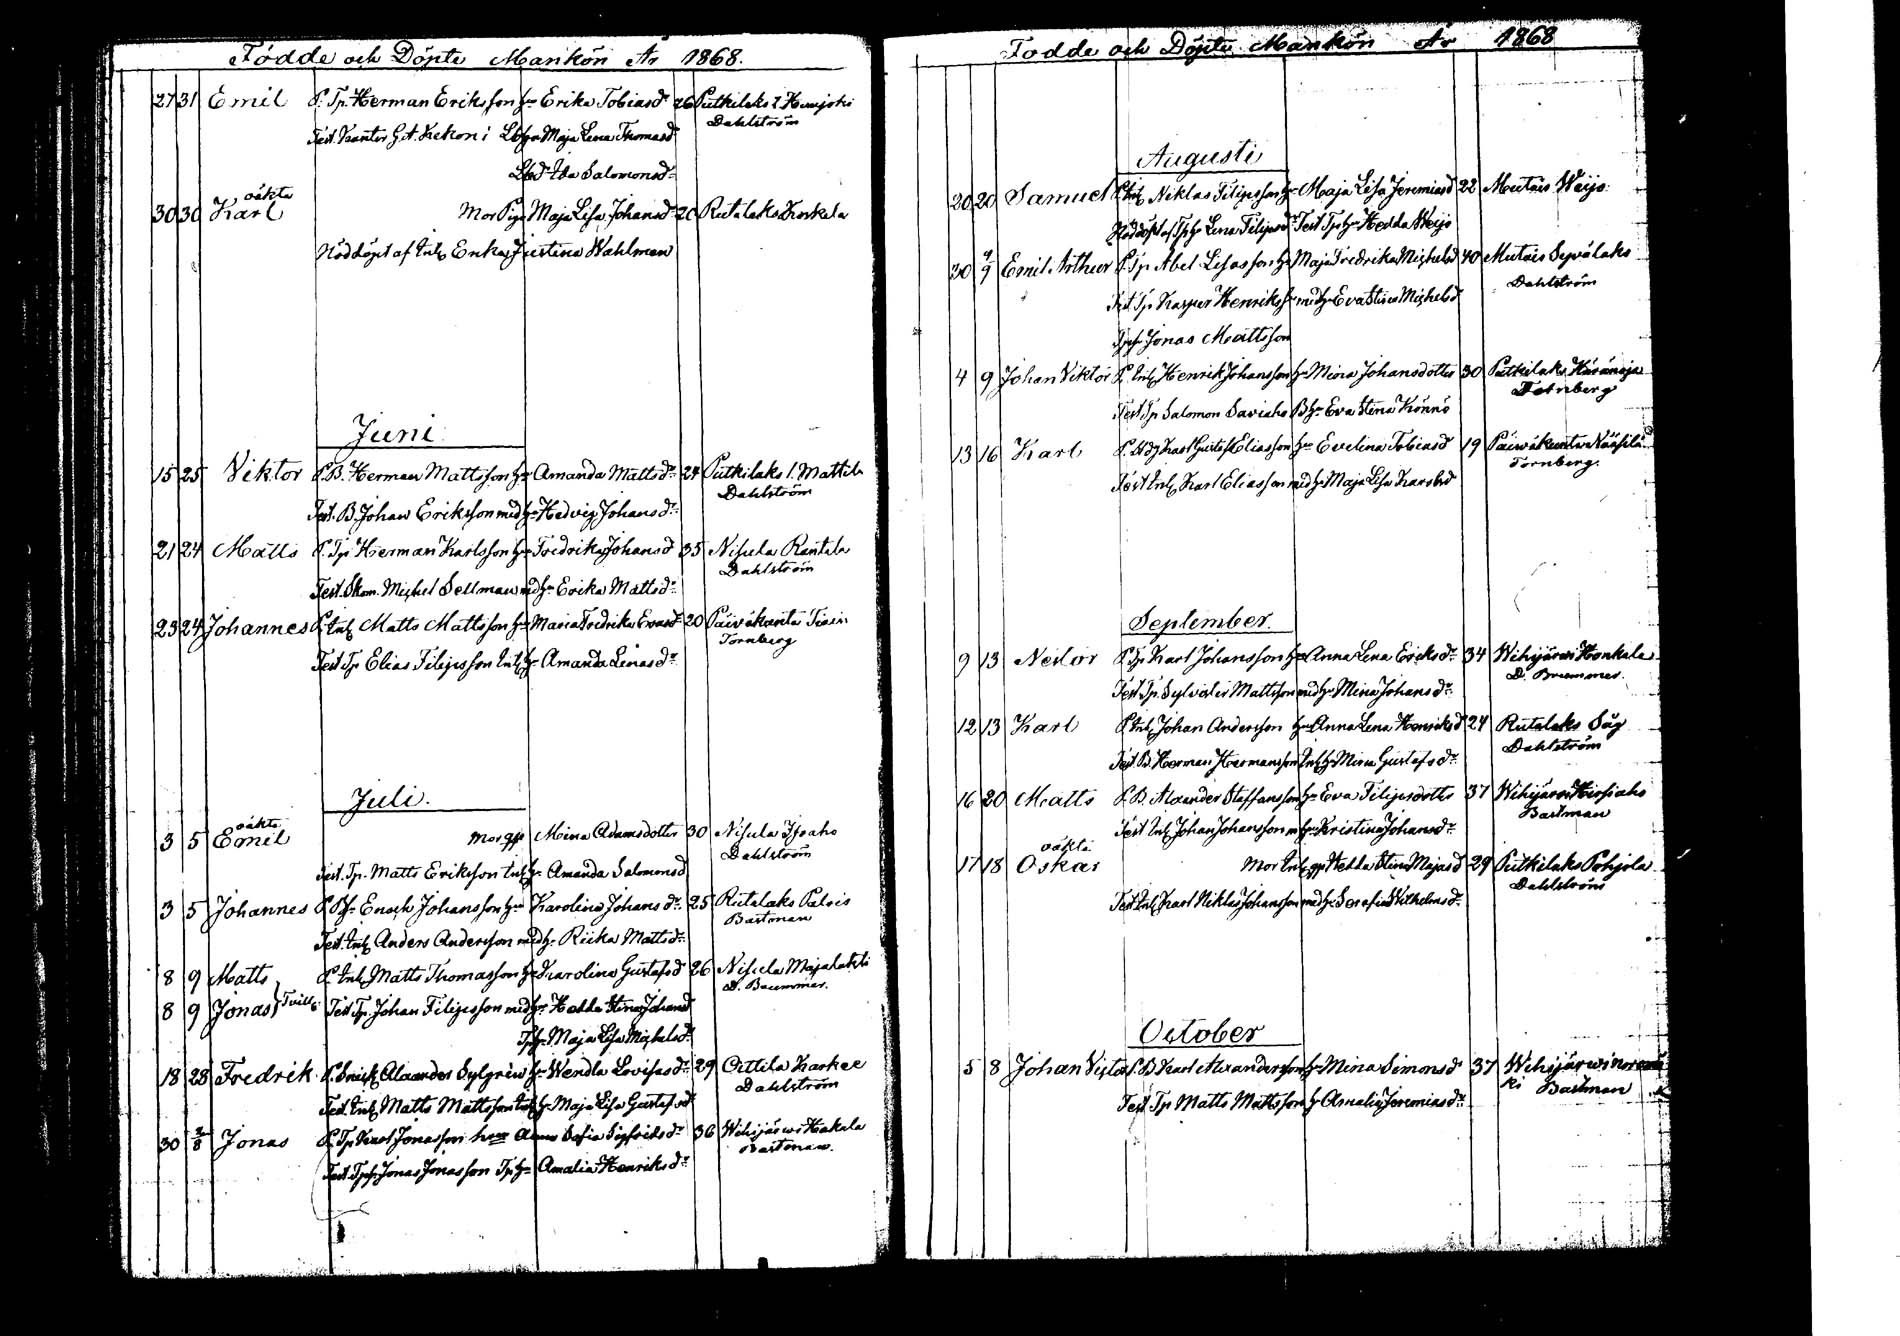 Födde och Döpte Mankön År 1868.
27 31 Emil P. Tp. Herman Eriksson hu Erika Tobiasdr 26 Putkilaks
Dahlström
Test. Kantor G.A. Maja Lena Thomasd
Ida Salomonsdr
oäkta
30 30 Karl Mor Pig. Maja Lisa Johansdr 20 Rutalaks Korkala
Nöddöpt af Inh Justina Wahlman
Juni
15 25 Viktor P. B. Herman Mattsson hu Amanda Mattsdr 24 Putkilaks 1. Mattila
Dahlström
Test. B. Johan Eriksson med hu Hedvig Johansdr
21 24 Matts P. Tp. Herman Karlsson hu Fredrika Johansd 35 Nisula Rantala
Dahlström
Test. Skom. Michel Sellman med hu Erika Mattsdr
23 24 Johannes P. Inh Matts Mattsson hu Maria Fredrika 20 Päiväkunta
Tornberg
Test Tp Elias Filipsson Inh hu Amanda Linasdr
Juli.
oäkta
3 5 Emil Mor Mina Adamsdotter 30 Nisula Ipsaho
Dahlström
Test. Tp. Matts Eriksson Inh hu Amanda Salomonsd
3 5 Johannes P. Enoch Johansson hu Karolina Johansdr 25 Rutalaks Palois
Bastman
Test. Inh Anders Andersson med hu Riika Mattsdr
8 9 Matts P. Inh Matts Thomasson hu Karolina Gustafsd 26 Nisula Majalahti
D. Brummer.
8 9 Jonas Tvill. Test Tp. Johan Filipsson med hu Hedda Stina Johansd
Maja Lisa Michelsdr
18 28 Fredrik P. Snick Alexander Sylgrén hu Wendla Lovisasdr 29 Ottila Karkee
Dahlström
Test. Inh Matts Mattsson Inh hu Maja Lisa Gustafsdr
30 2/8 Jonas P. Tp Karl Jonasson Sofia Sigfridsdr 36 Wihijärwi Hakala
Bastman.
Test Jonas Jonasson Tp hu Amalia Henriksdr
Födde och Döpte Mankön År 1868
Augusti
20 20 Samuel P. Inh Niklas Filipsson hu Maja Lisa Jeremiasd 22 Mutais Weijo
Nöddöpt af Lena Filipsd Test Tp hu Hedda Weijo
30 4/9 Emil Arthur P. Tp Abel Lisasson hu Maja Fredrika Michelsd 40 Mutais Sepälaks
Dahlström
Test Tp Kasper Henriksson med hu Eva Stina Michelsd
Jonas Mattsson
4 9 Johan Viktor P. Inh Henrik Johansson hu Mina Johansdotter 30 Putkilaks Häränoja
Tornberg
Test Tp Salomon Saviaho B hu Eva Stina Könnö
13 16 Karl P. Karl Gustaf Eliasson hu Evelina Tobiasd 19 Päiväkunta
Tornberg.
Test Inh Karl Eliasson med hu Maja Lisa Karlsd
September.
9 13 Nestor P. Tp Karl Johansson hu Anna Lena Eriksdr 34 Wihijärwi Honkala
D. Brummer.
Test Tp. Sylvester Mattsson med hu Mina Johansdr
12 13 Karl P. Inh Johan Andersson hu Anna Lena Henriksd 24 Rutalaks Såg
Dahlström
Test B. Herman Hermansson Inh hu Mina Gustafsdr
16 20 Matts P. B. Alexander Staffansson hu Eva Filipsdotter 37 Wihijärwi Hirsiaho
Bastman
Test Inh Johan Johansson m hu Kristina Johansdr
oäkta
17 18 Oskar Mor Inh Hedda Stina Majasd 29 Putkilaks Pohjola
Dahlström
Test Inh Karl Niklas Johansson med hu Serafia Wilhelmsdr
October
5 8 Johan Victor P. B Karl Alexandersson hu Mina Simonsd 37 Wihijärwi
Bastman
Test Tp Matts Mattsson hu Amalia Jeremiasdr